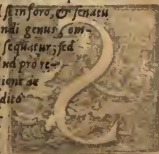 in foro, & senatu
ndi genus som-
sequatur; sed
nd pro re-
ione ac
dito
S